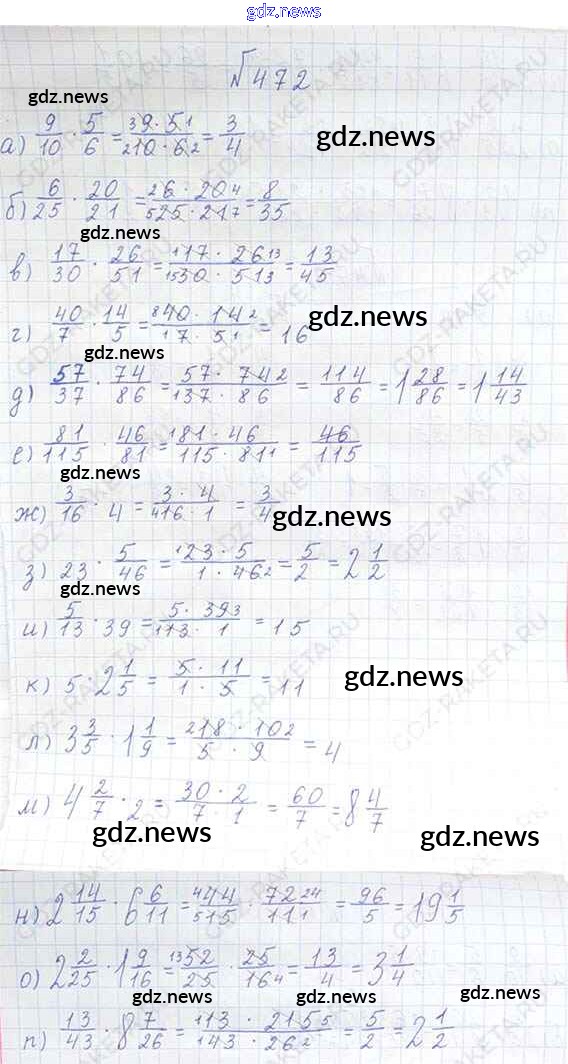 gdz.news
№472
gdz.news
а) 9/10 · 5/6 = 39·51/210·62 = 3/4
gdz.news
б) 6/25 · 20/21 = 26·204/525·217 = 8/35
gdz.news
в) 17/30 · 26/51 = 117·2613/1530·513 = 13/45
г) 40/7 · 14/5 = 840·142/17·51 = 16
gdz.news
gdz.news
д) 57/37 · 74/86 = 57·742/137·86 = 114/86 = 1 28/86 = 1 14/43
е) 81/115 · 46/81 = 181·46/115·811 = 46/115
gdz.news
ж) 3/16 · 4 = 3·4/416·1 = 3/4
gdz.news
з) 23 · 5/46 = 123·5/1·462 = 5/2 = 2 1/2
gdz.news
и) 5/13 · 39 = 5·393/113·1 = 15
к) 5 · 2 1/5 = 5·11/1·5 = 11
gdz.news
л) 3 3/5 · 1 1/9 = 218·102/5·9 = 4
м) 4 2/7 · 2 = 30·2/7·1 = 60/7 = 8 4/7
gdz.news
gdz.news
н) 2 14/15 · 6 6/11 = 444/515 · 7224/111 = 96/5 = 19 1/5
о) 2 2/25 · 1 9/16 = 1352/25 · 25/164 = 13/4 = 3 1/4
gdz.news
gdz.news
gdz.news
п) 13/43 · 8 7/26 = 113·2155/143·262 = 5/2 = 2 1/2